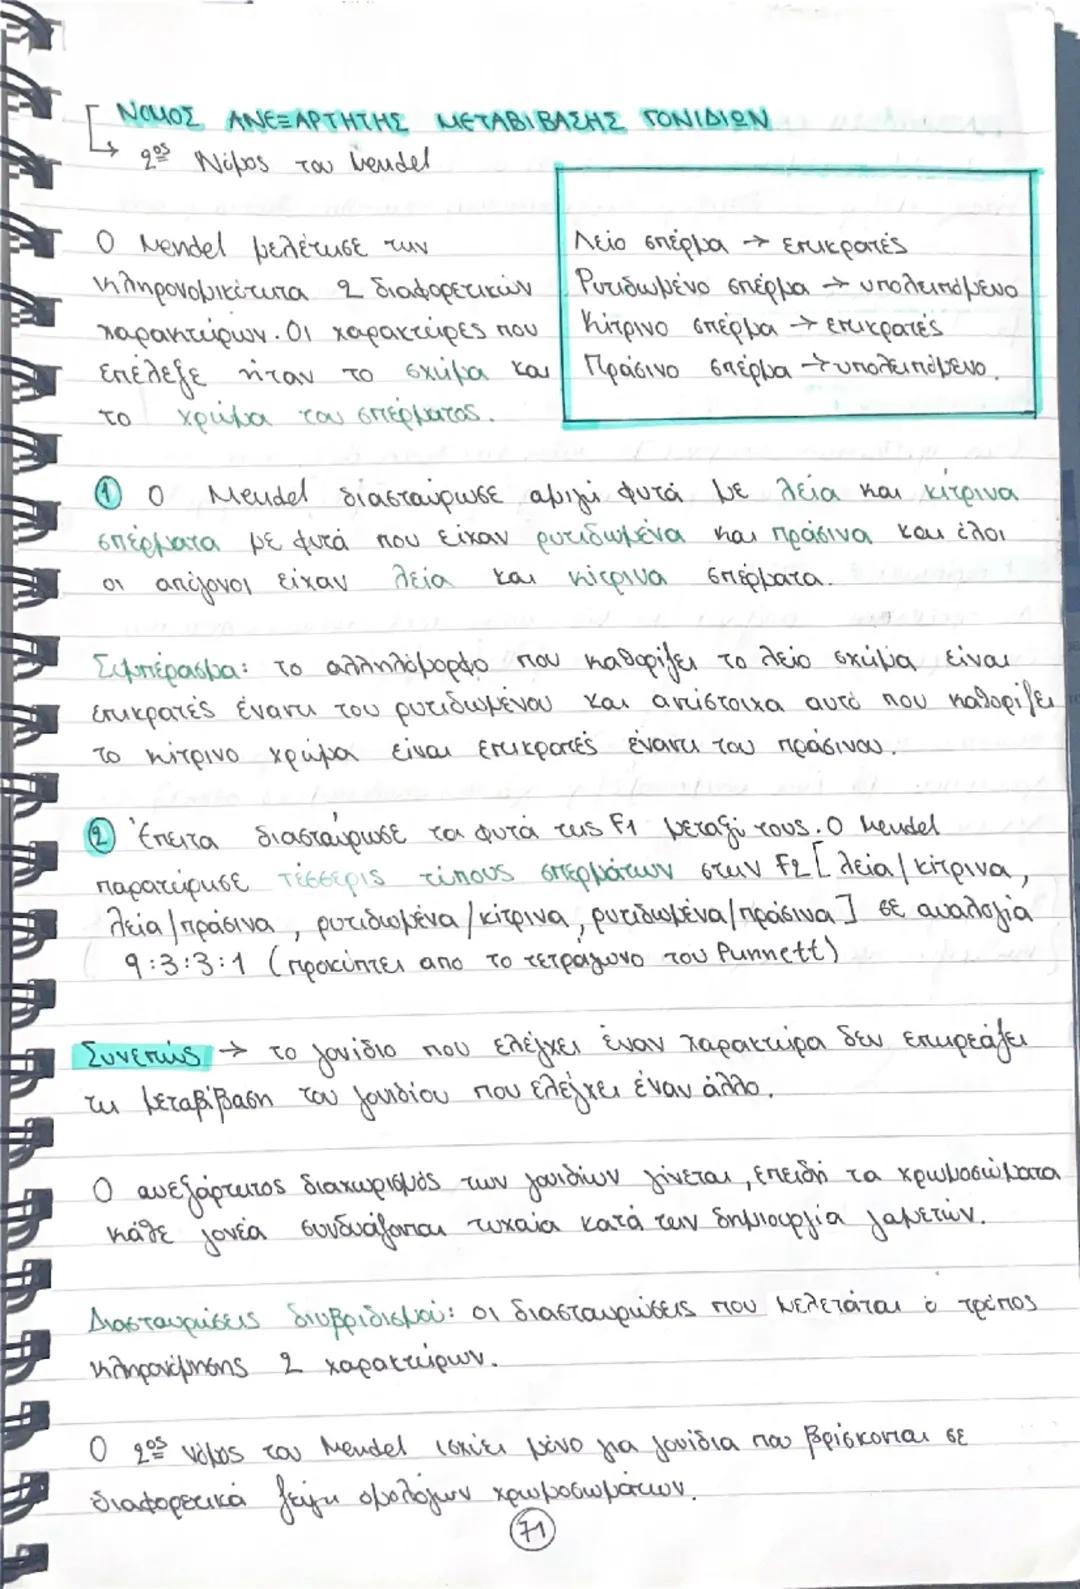 ΝΟΜΟΣ ΑΝΕΞΑΡΤΗΤΗΣ ΜΕΤΑΒΙΒΑΣΗΣ ΓΟΝΙΔΙΩΝ
2ος Νόμος του Mendel
Ο Mendel μελέτησε την
κληρονομικότητα 2 διαφορετικών
χαρακτήρων. Οι χαρακτήρες που
επέλεξε ήταν το σχήμα και
το χρώμα του σπέρματος.
Λείο σπέρμα → επικρατές
Ρυτιδωμένο σπέρμα → υπολειπόμενο
Κίτρινο σπέρμα → επικρατές
Πράσινο σπέρμα → υπολειπόμενο.
① Ο Mendel διασταύρωσε αμιγή φυτά με λεία και κίτρινα
σπέρματα με φυτά που είχαν ρυτιδωμένα και πράσινα και όλοι
οι απόγονοι είχαν λεία και κίτρινα σπέρματα.
Συμπέρασμα: το αλληλόμορφο που καθορίζει το λείο σχήμα είναι
επικρατές έναντι του ρυτιδωμένου και αντίστοιχα αυτό που καθορίζει
το κίτρινο χρώμα είναι επικρατές έναντι του πράσινου.
② Έπειτα διασταύρωσε τα φυτά της F1 μεταξύ τους. Ο Mendel
παρατήρησε τέσσερις τύπους σπερμάτων στην F2 [λεία/κίτρινα,
λεία/πράσινα, ρυτιδωμένα/κίτρινα, ρυτιδωμένα/πράσινα] σε αναλογία
9:3:3:1 (προκύπτει απο το τετράγωνο του Punnett)
Συνεπώς → το γονίδιο που ελέγχει έναν χαρακτήρα δεν επηρεάζει
τη μεταβίβαση του γονιδίου που ελέγχει έναν άλλο.
Ο ανεξάρτητος διαχωρισμός των γονιδίων γίνεται, επειδή τα χρωμοσώματα
κάθε γονέα συνδυάζονται τυχαία κατά την δημιουργία γαμετών.
Διασταυρώσεις διυβριδισμού: οι διασταυρώσεις που μελετάται ο τρόπος
κληρονόμησης 2 χαρακτήρων.
Ο 2ος νόμος του Mendel ισχύει μόνο για γονίδια που βρίσκονται σε
διαφορετικά ζεύγη ομολόγων χρωμοσωμάτων.
71